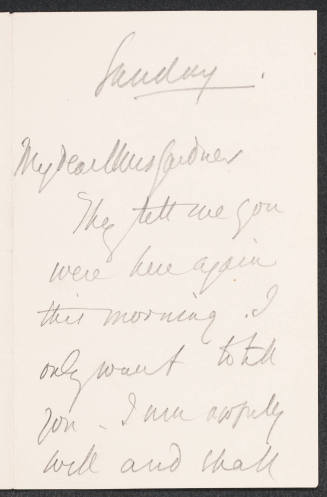 Sunday.
My Dear Mrs Gardner
They tell me you
were here again
this morning. I
only want to tell
you - I am awfully
well and shall